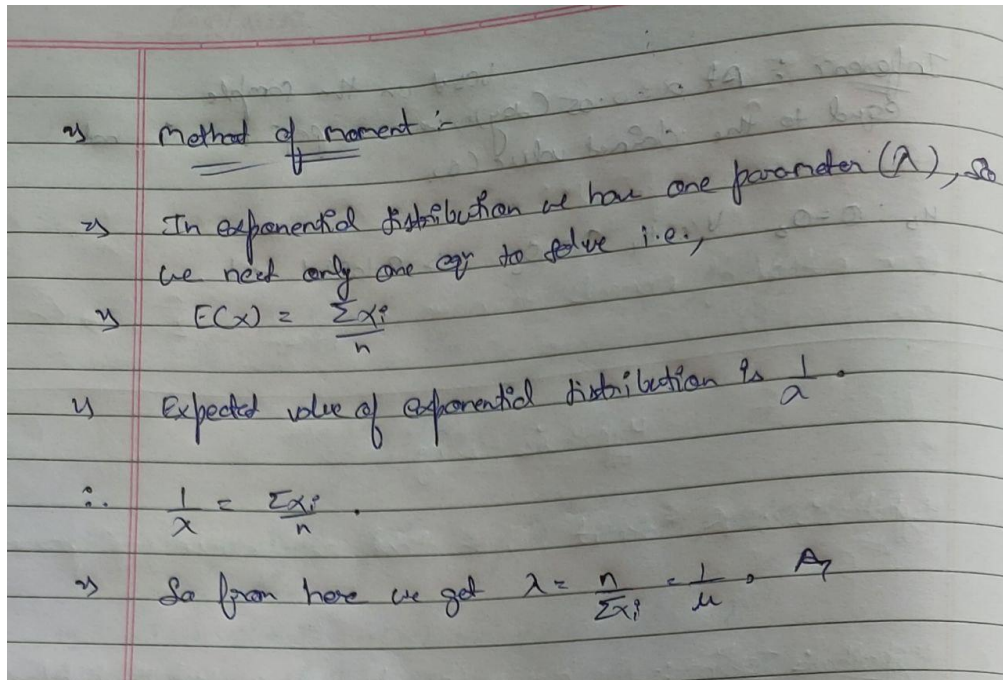 ⇒ Method of moment :-
⇒ In exponential distribution we have one parameter (λ), so
we need only one eqn to solve i.e.,
⇒ E(x) = Σxi/n
⇒ Expected value of exponential distribution is 1/λ.
∴ 1/λ = Σxi/n .
⇒ So from here we get λ = n/Σxi = 1/μ .